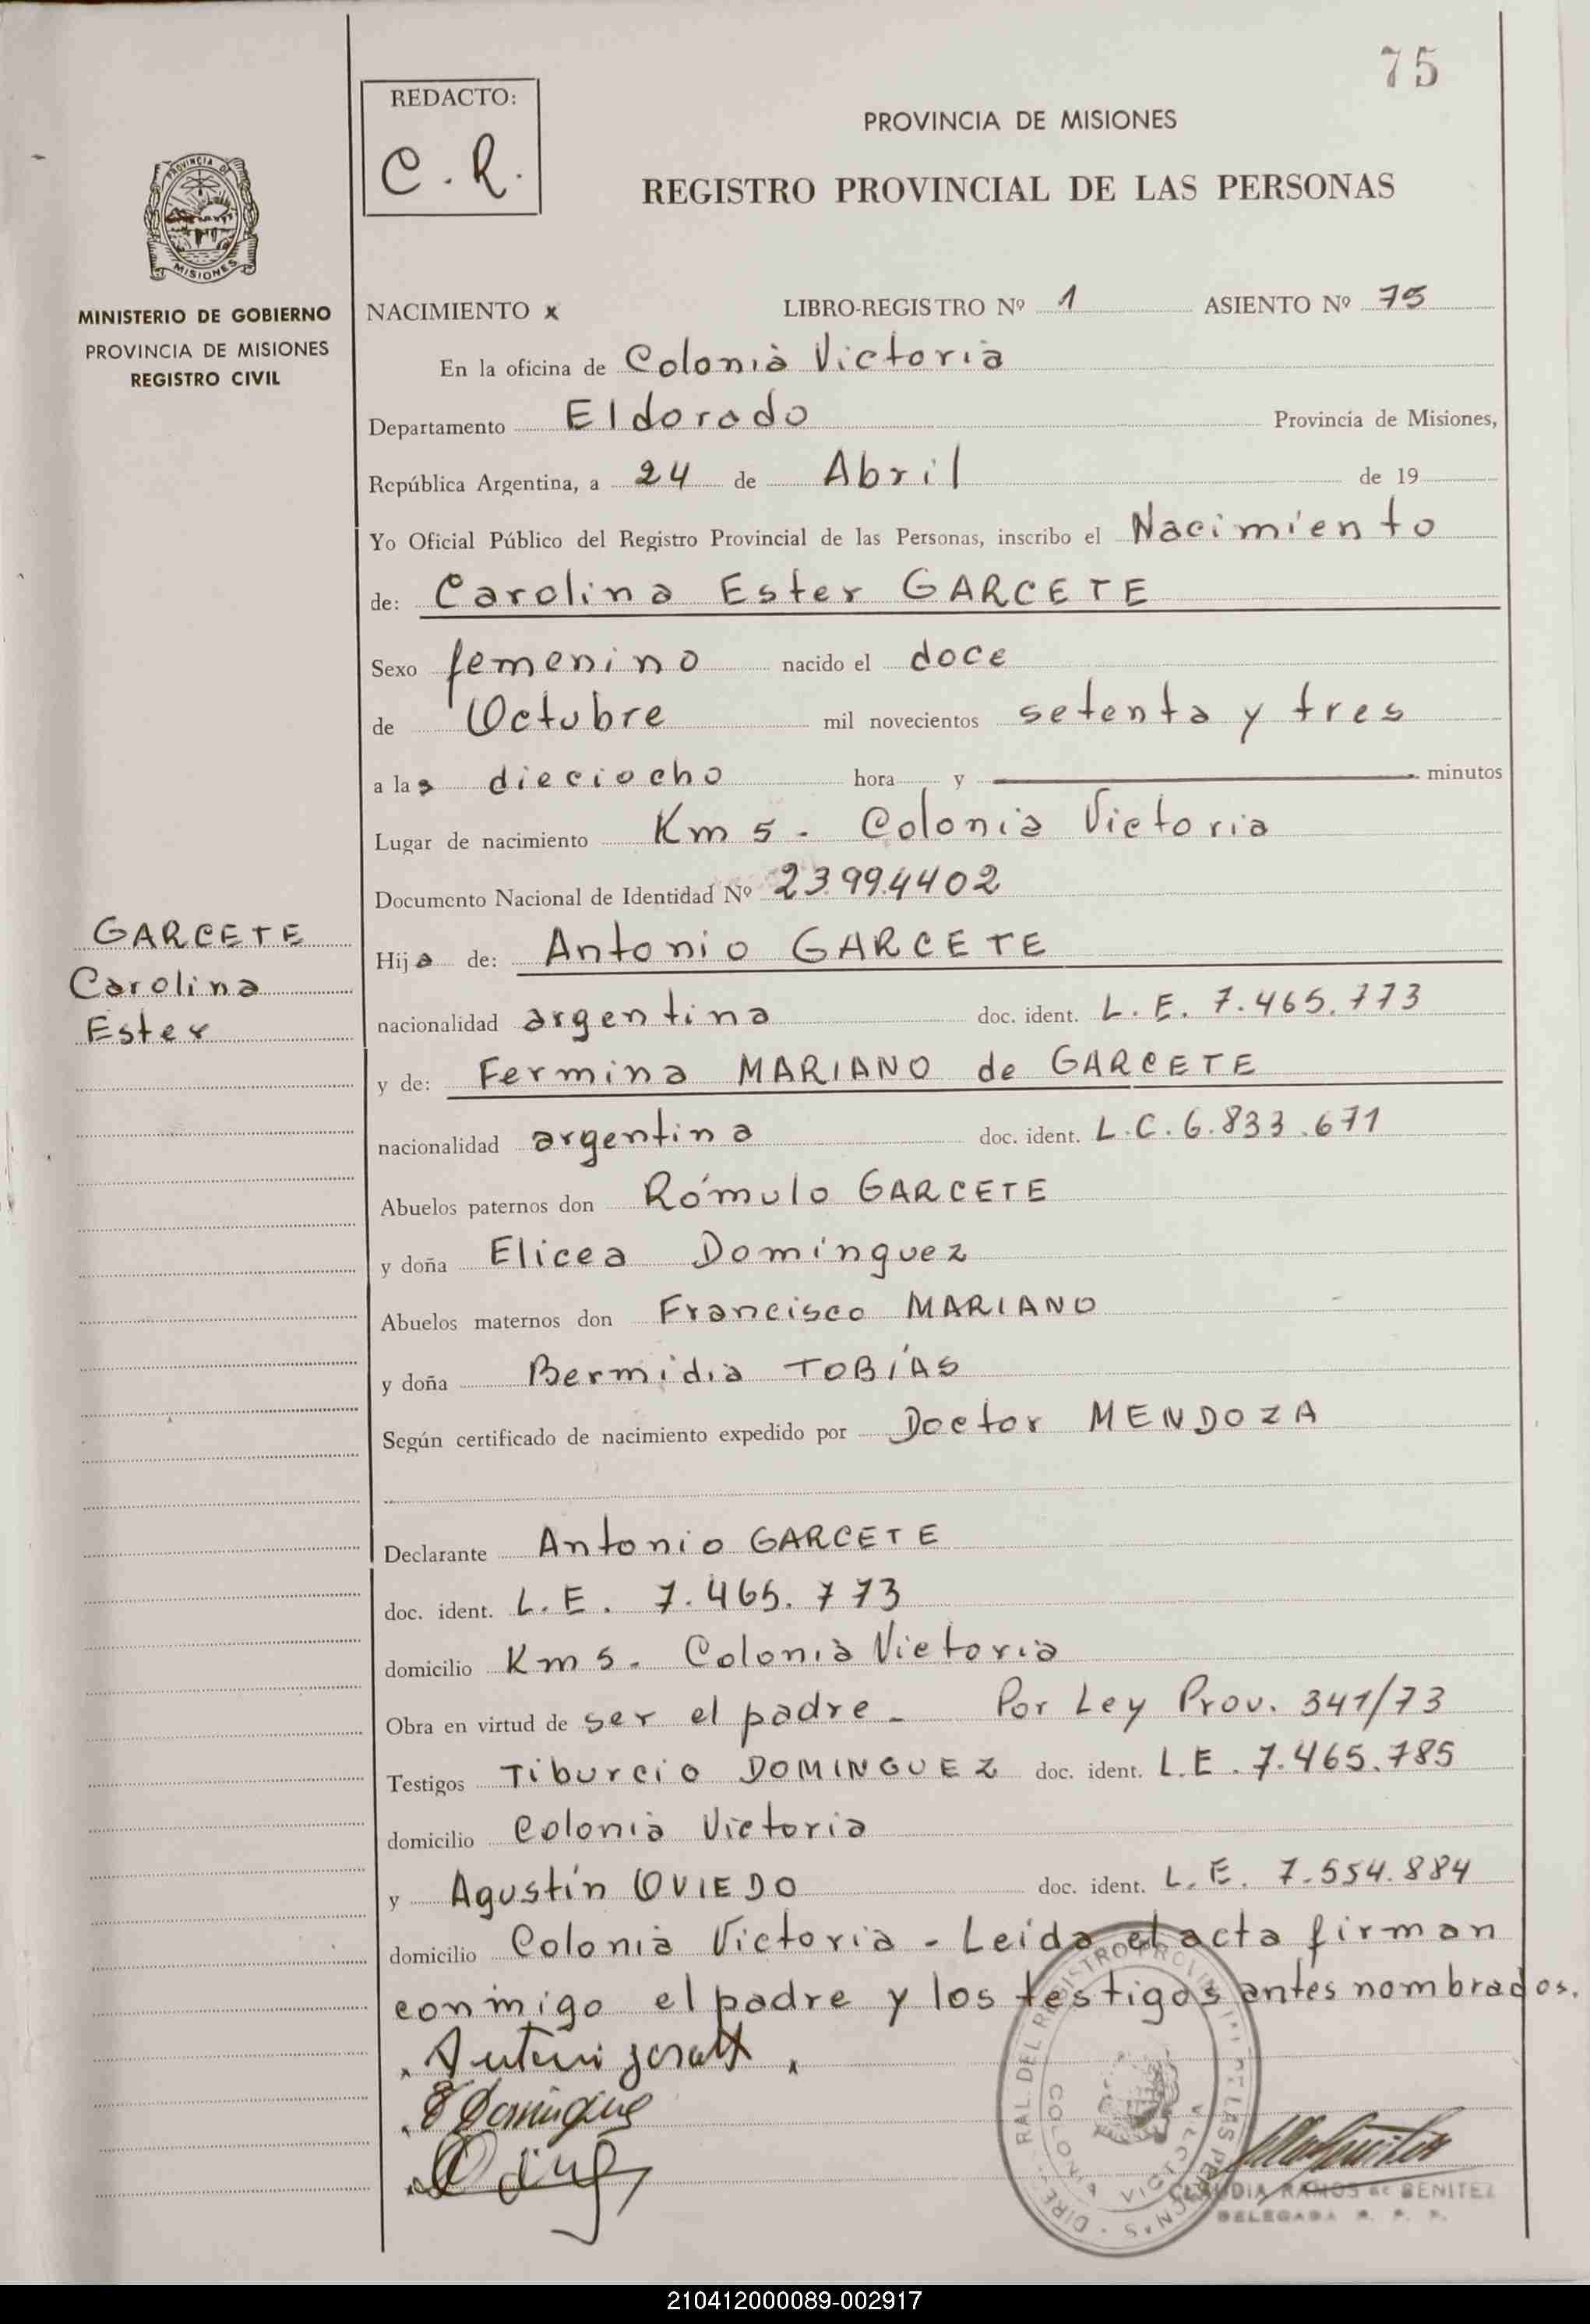 75
REDACTO:
C. R.
PROVINCIA DE MISIONES
REGISTRO PROVINCIAL DE LAS PERSONAS
PROVINCIA DE
MISIONES
MINISTERIO DE GOBIERNO
PROVINCIA DE MISIONES
REGISTRO CIVIL
NACIMIENTO x LIBRO-REGISTRO Nº 1 ASIENTO Nº 75
En la oficina de Colonia Victoria
Departamento Eldorado Provincia de Misiones,
República Argentina, a 24 de Abril de 19
Yo Oficial Público del Registro Provincial de las Personas, inscribo el Nacimiento
de: Carolina Ester GARCETE
Sexo femenino nacido el doce
de Octubre mil novecientos setenta y tres
a las dieciocho hora y minutos
Lugar de nacimiento Km 5 - Colonia Victoria
Documento Nacional de Identidad Nº 23.994402
GARCETE
Carolina
Ester
Hija de: Antonio GARCETE
nacionalidad argentina doc. ident. L. E. 7.465.773
y de: Fermina MARIANO de GARCETE
nacionalidad argentina doc. ident. L.C. 6.833.671
Abuelos paternos don Rómulo GARCETE
y doña Elicea Domínguez
Abuelos maternos don Francisco MARIANO
y doña Bermidia TOBÍAS
Según certificado de nacimiento expedido por Doctor MENDOZA
Declarante Antonio GARCETE
doc. ident. L. E. 7.465.773
domicilio Km 5 - Colonia Victoria
Obra en virtud de ser el padre - Por Ley Prov. 341/73
Testigos Tiburcio DOMINGUEZ doc. ident. L.E. 7.465.785
domicilio Colonia Victoria
y Agustín OVIEDO doc. ident. L. E. 7.554.884
domicilio Colonia Victoria - Leída el acta firman
conmigo el padre y los testigos antes nombrados.
CLAUDIA RAMOS de BENITEZ
DELEGADA R. P. P.
210412000089-002917